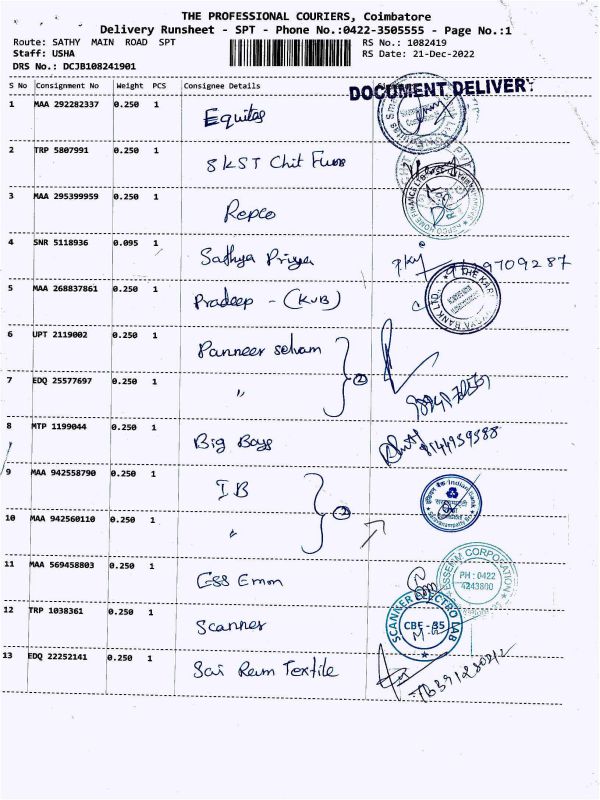 THE PROFESSIONAL COURIERS, Coimbatore
Delivery Runsheet - SPT - Phone No.:0422-3505555 - Page No.:1
Route: SATHY MAIN ROAD SPT RS No.: 1082419
Staff: USHA RS Date: 21-Dec-2022
DRS No.: DCJB108241901
S No Consignment No Weight PCS Consignee Details
DOCUMENT DELIVERY
1 MAA 292282337 0.250 1 Equitas
2 TRP 5807991 0.250 1 8 KST Chit Funs
3 MAA 295399959 0.250 1 Repco
4 SNR 5118936 0.095 1 Sathya Priya
5 MAA 268837861 0.250 1 Pradeep - (KVB)
6 UPT 2119002 0.250 1 Panneer selvam
②
7 EDQ 25577697 0.250 1 "
8 MTP 1199044 0.250 1 Big Boys
9 MAA 942558790 0.250 1 IB
Indian Bank
②
10 MAA 942560110 0.250 1 "
11 MAA 569458803 0.250 1 Ess Emm
ESSEMM CORPORATION
PH : 0422
4243800
12 TRP 1038361 0.250 1 Scanner
SCANNER ELECTRO LAB
CBE - 35
13 EDQ 22252141 0.250 1 Sai Ram Textile